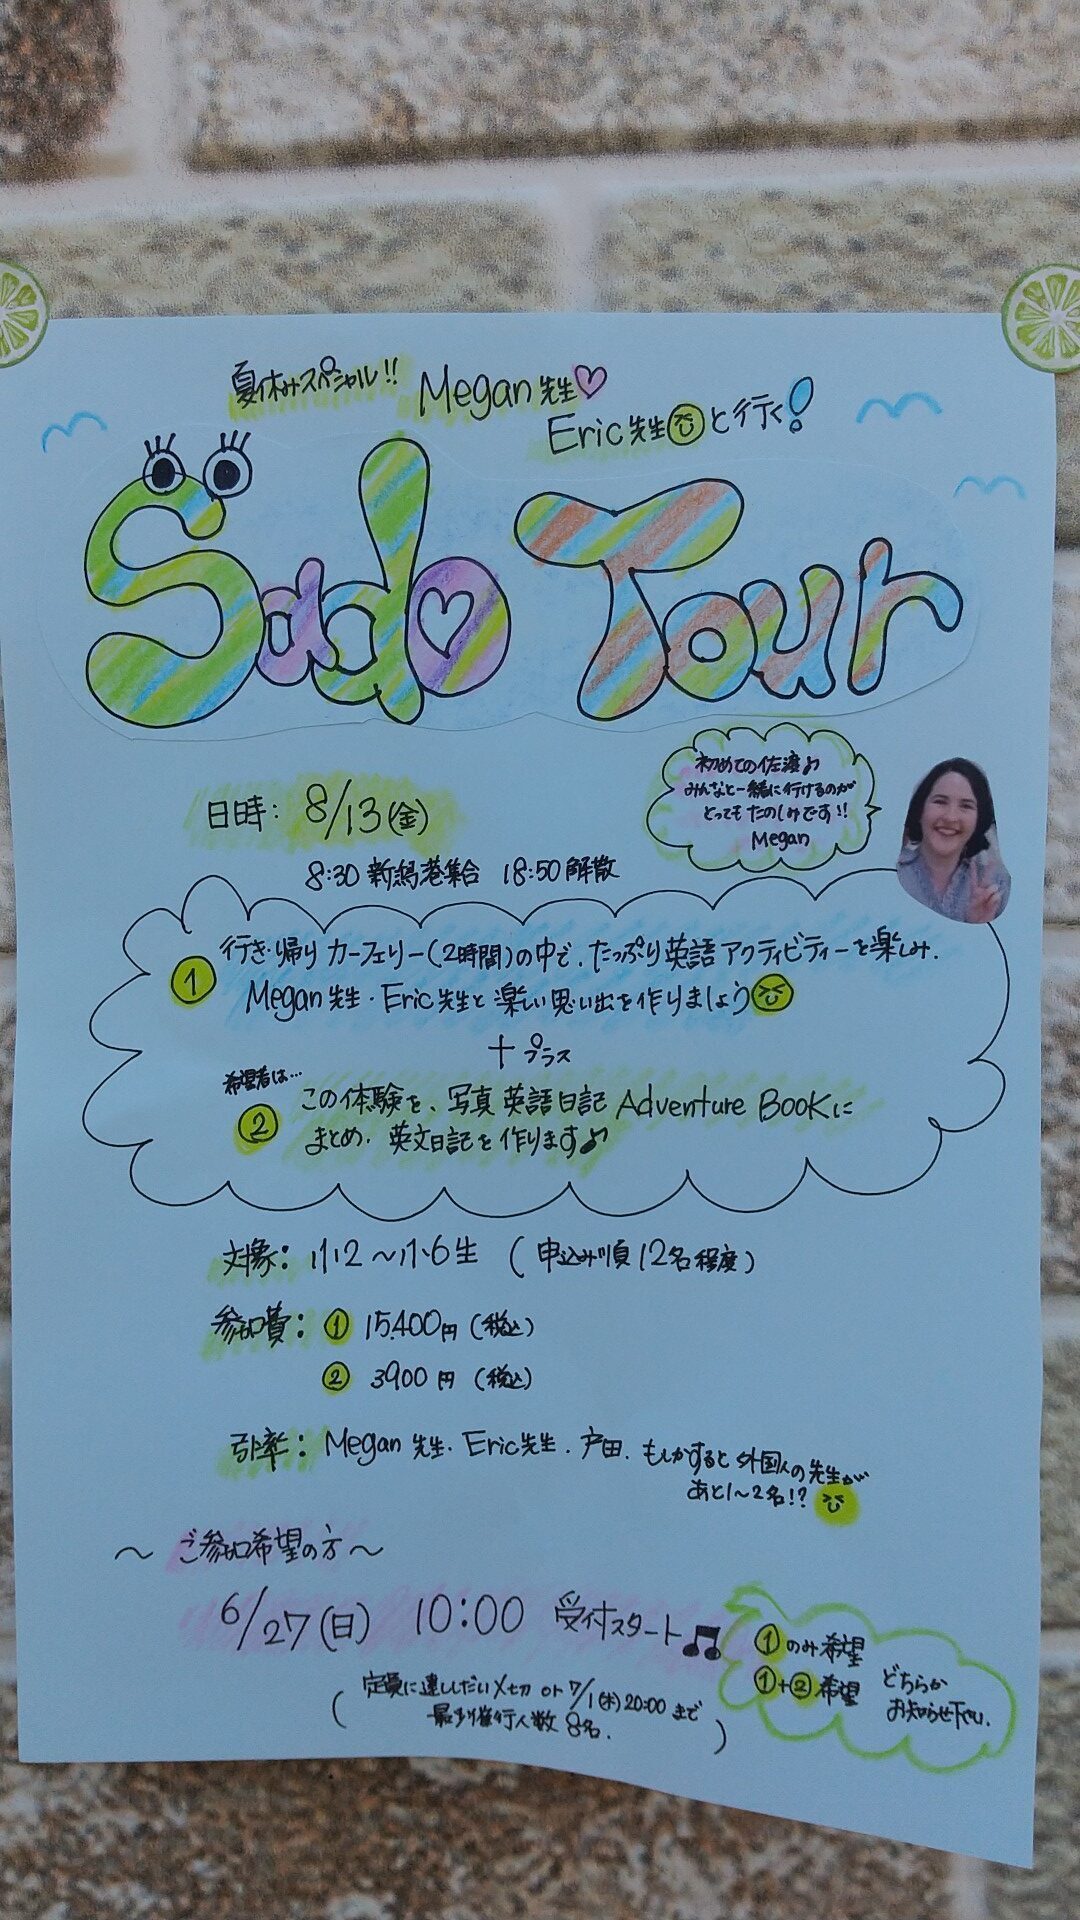 夏休みスペシャル!! Megan先生♡
Eric先生と行く!
Sado Tour
初めての佐渡♪
みんなと一緒に行けるのが
とってもたのしみです!!
Megan
日時: 8/13(金)
8:30 新潟港集合 18:50 解散
① 行き・帰り カーフェリー(2時間)の中で、たっぷり英語アクティビティーを楽しみ、
Megan先生・Eric先生と楽しい思い出を作りましょう
+プラス
希望者は…
② この体験を、写真英語日記 Adventure BooKに
まとめ、英文日記を作ります♪
対象: 小2〜小6生 (申込み順 12名程度)
参加費: ① 15,400円(税込)
② 3900円(税込)
引率: Megan先生・Eric先生・戸田、もしかすると外国人の先生が
あと1〜2名!?
〜ご参加希望の方〜
6/27(日) 10:00 受付スタート♫
(定員に達ししだい〆切 or 7/1(木)20:00まで
最少催行人数 8名.)
①のみ希望
①+②希望
どちらか
お知らせ下さい.